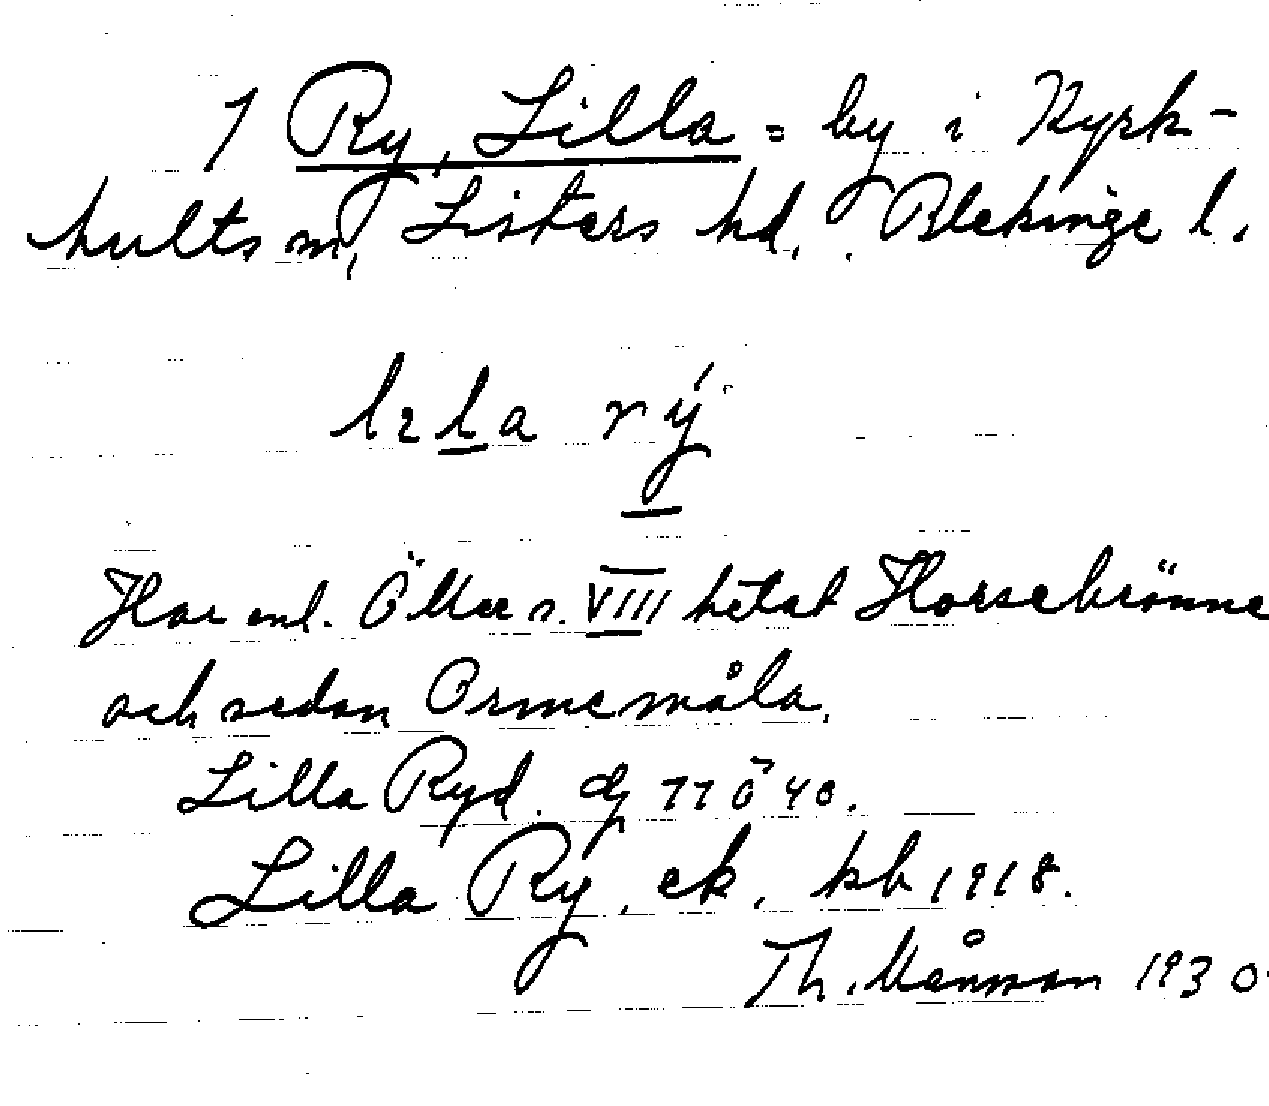 1 Ry, Lilla = by i Kyrk-
hults sn, Listers hd, Blekinge l.
lıla rý
Har enl. Öller s. VIII hetat Horsebrönne
och sedan Ormemåla.
Lilla Ryd. dj 77 Ö 40.
Lilla Ry, ek, kb 1918.
Th. Månsson 1930